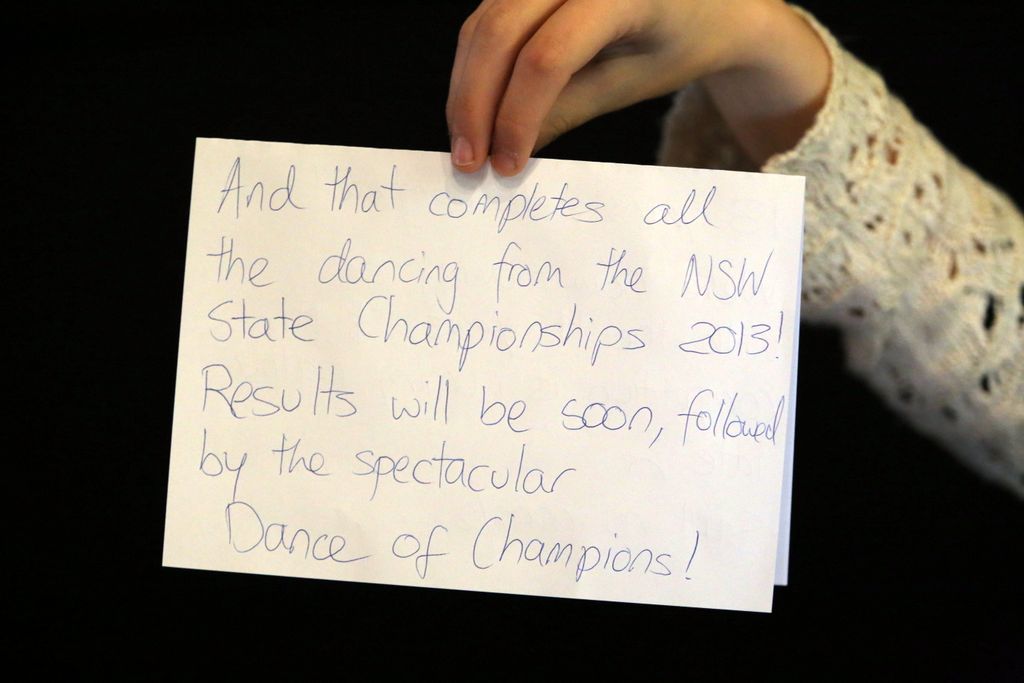 And that completes all
the dancing from the NSW
State Championships 2013!
Results will be soon, followed
by the spectacular
Dance of Champions!